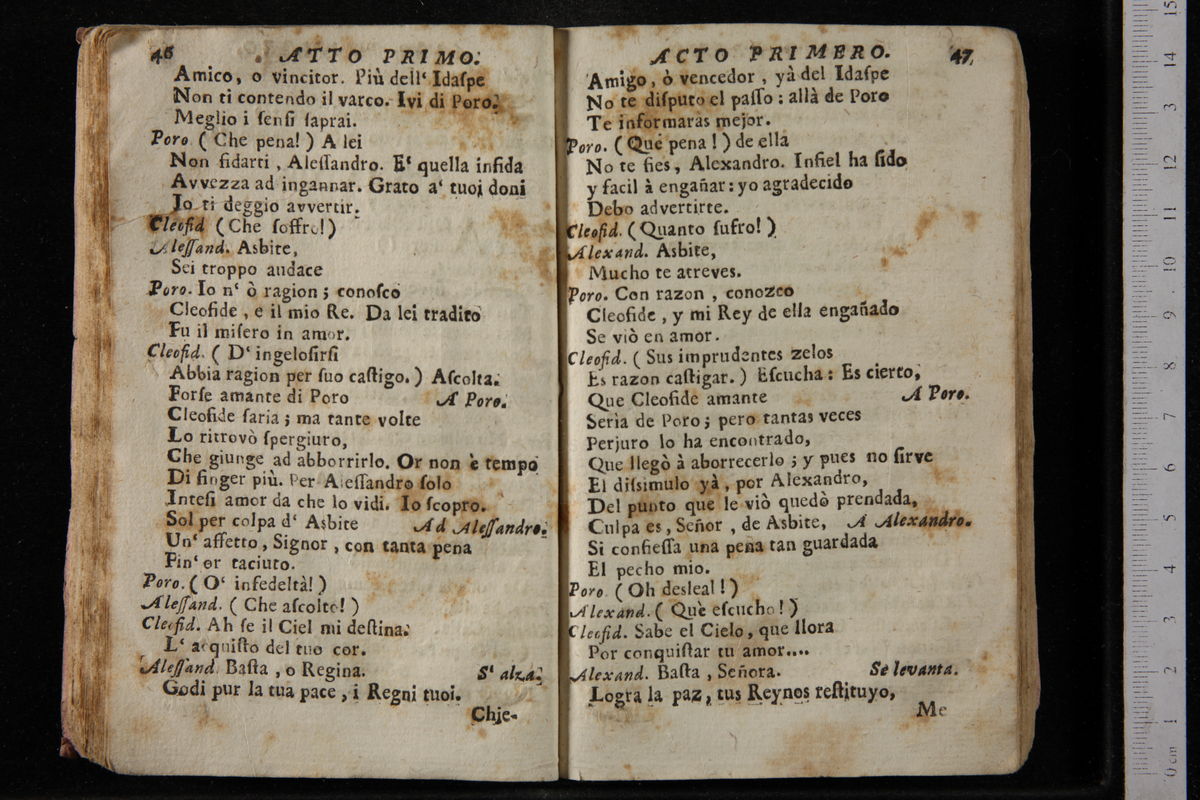 46 ATTO PRIMO.
Amico, o vincitor. Più dell' Idaſpe
Non ti contendo il varco. Ivi di Poro.
Meglio i ſenſi ſaprai.
Poro. ( Che pena! ) A lei
Non fidarti, Aleſſandro. E' quella infida
Avvezza ad ingannar. Grato a' tuoi doni
Io ti deggio avvertir.
Cleofid ( Che ſoffro! )
Aleſſand. Asbite,
Sei troppo audace
Poro. Io n' ò ragion; conoſco
Cleofide, e il mio Re. Da lei tradito
Fu il miſero in amor.
Cleofid. ( D' ingeloſirſi
Abbia ragion per ſuo caſtigo. ) Aſcolta.
Forſe amante di Poro A' Poro.
Cleofide ſaria; ma tante volte
Lo ritrovò ſpergiuro,
Che giunge ad abborrirlo. Or non è tempo
Di finger più. Per Aleſſandro ſolo
Inteſi amor da che lo vidi. Io ſcopro.
Sol per colpa d' Asbite Ad Aleſſandro.
Un' affetto, Signor, con tanta pena
Fin' or taciuto.
Poro. ( O' infedeltà! )
Aleſſand. ( Che aſcolto! )
Cleofid. Ah ſe il Ciel mi deſtina.
L' acquiſto del tuo cor.
Aleſſand. Baſta, o Regina. S' alza.
Godi pur la tua pace, i Regni tuoi.
Chie-
ACTO PRIMERO. 47
Amigo, ò vencedor, yà del Idaſpe
No te diſputo el paſſo: allà de Poro
Te informaras mejor.
Poro. ( Què pena! ) de ella
No te fies, Alexandro. Infiel ha ſido
y facil à engañar: yo agradecido
Debo advertirte.
Cleofid. ( Quanto ſufro! )
Alexand. Asbite,
Mucho te atreves.
Poro. Con razon, conozco
Cleofide, y mi Rey de ella engañado
Se viò en amor.
Cleofid. ( Sus imprudentes zelos
Es razon caſtigar. ) Eſcucha: Es cierto,
Que Cleofide amante A Poro.
Serìa de Poro; pero tantas veces
Perjuro lo ha encontrado,
Que llegò à aborrecerlo; y pues no ſirve
El diſsimulo yà, por Alexandro,
Del punto que le viò quedò prendada,
Culpa es, Señor, de Asbite, A Alexandro.
Si confieſſa una pena tan guardada
El pecho mio.
Poro ( Oh desleal! )
Alexand. ( Què eſcucho! )
Cleofid. Sabe el Cielo, que llora
Por conquiſtar tu amor....
Alexand. Baſta, Señora. Se levanta.
Logra la paz, tus Reynos reſtituyo,
Me
0 cm 1 2 3 4 5 6 7 8 9 10 11 12 13 14 15